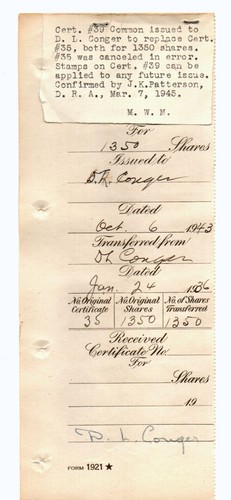 Cert. #39 Common issued to
D. L. Conger to replace Cert.
#35, both for 1350 shares.
#35 was canceled in error.
Stamps on Cert. #39 can be
applied to any future issue.
Confirmed by J.K.Patterson,
D. R. A., Mar. 7, 1945.
M. W. M.
For
1350 Shares
Issued to
D. L. Conger
Dated
Oct. 6 1943
Transferred from
D L Conger
Dated
Jan. 24 1936
No. Original Certificate No. Original Shares No. of Shares Transferred
35 1350 1350
Received
Certificate No.
For
Shares
19
D. L. Conger
FORM 1921 ★